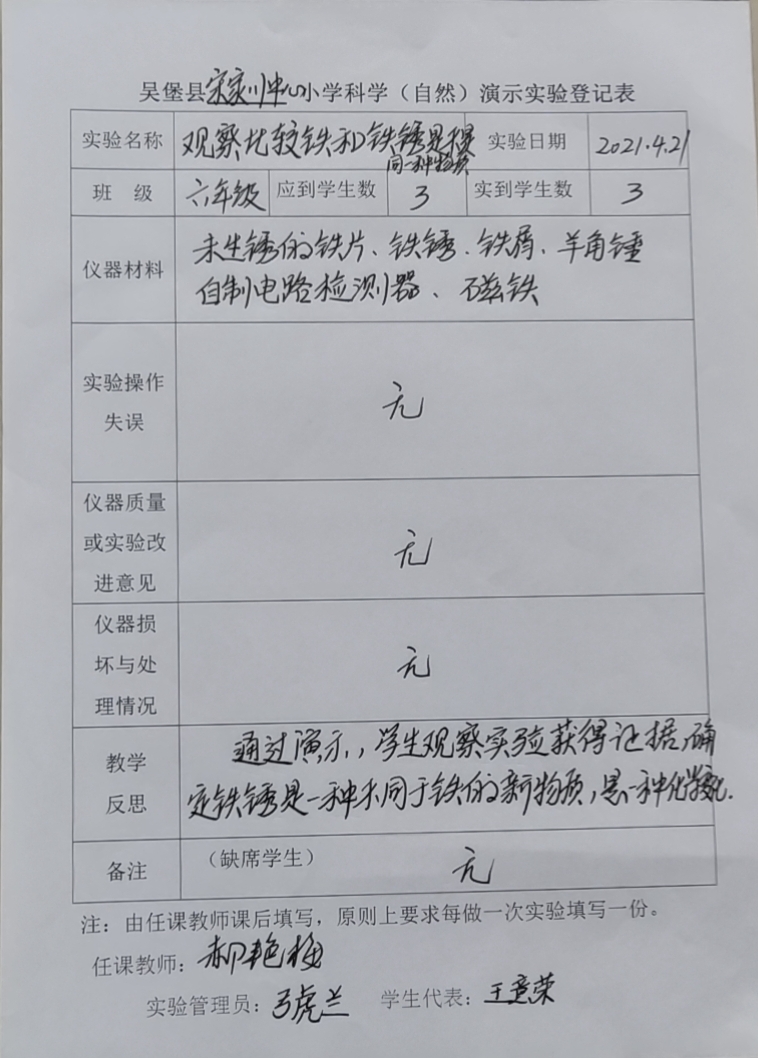 吴堡县宋家川中心小学科学（自然）演示实验登记表
实验名称 观察比较铁和铁锈是不是 实验日期 2021.4.21
同一种物质
班 级 六年级 应到学生数 3 实到学生数 3
仪器材料 未生锈的铁片、铁锈、铁屑、羊角锤
自制电路检测器、磁铁
实验操作
失误
无
仪器质量
或实验改
进意见
无
仪器损
坏与处
理情况
无
教学
反思
通过演示，学生观察实验获得证据，确
定铁锈是一种不同于铁的新物质，是一种化学变化.
备注 （缺席学生） 无
注：由任课教师课后填写，原则上要求每做一次实验填写一份。
任课教师：郝艳梅
实验管理员：弓虎兰 学生代表：王意荣